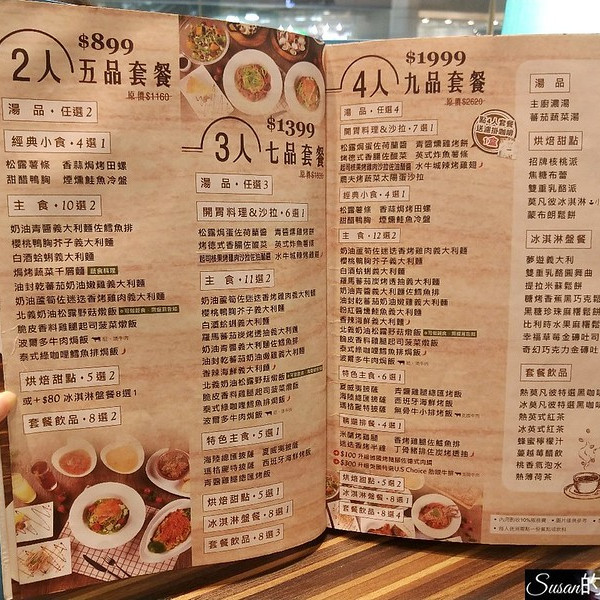 $899
2人 五品套餐
原價$1160
湯 品・任選2
經典小食・4選1
松露薯條 香蒜焗烤田螺
甜醋鴨胸 煙燻鮭魚冷盤
主 食・10選2
奶油青醬義大利麵佐鱈魚排
櫻桃鴨胸芥子義大利麵
白酒蛤蜊義大利麵
焗烤蔬菜千層麵 蔬食料理
油封乾蕃茄奶油嫩雞義大利麵
奶油蘆筍佐迷迭香烤雞肉義大利麵
北義奶油松露野菇燉飯
脆皮香料雞腿起司菠菜燉飯
波爾多牛肉焗飯
泰式綠咖哩鱈魚排焗飯
烘焙甜點・5選2
或+$80 冰淇淋盤餐8選1
套餐飲品・8選2
$1399
3人 七品套餐
湯 品・任選3
開胃料理&沙拉・6選1
松露焗蛋佐荷蘭醬 青醬燻雞烤餅
烤德式香腸佐酸菜 英式炸魚薯條
主 食・11選2
奶油蘆筍佐迷迭香烤雞肉義大利麵
櫻桃鴨胸芥子義大利麵
白酒蛤蜊義大利麵
羅馬蕃茄炭烤透抽義大利麵
奶油青醬義大利麵佐鱈魚排
油封乾蕃茄奶油嫩雞義大利麵
香辣海鮮義大利麵
北義奶油松露野菇燉飯
脆皮香料雞腿起司菠菜燉飯
泰式綠咖哩鱈魚排焗飯
波爾多牛肉焗飯
特色主食・5選1
海陸總匯披薩 夏威夷披薩
瑪格麗特披薩 西班牙海鮮烤飯
青醬雞腿總匯烤飯
烘焙甜點・5選1
冰淇淋盤餐・8選1
套餐飲品・8選3
$1999
4人 九品套餐
原價$2620
湯 品・任選4
開胃料理&沙拉・7選1
松露焗蛋佐荷蘭醬 青醬燻雞烤餅
烤德式香腸佐酸菜 英式炸魚薯條
農夫烤蔬菜太陽蛋沙拉
點4人套餐
送濾掛咖啡
1盒
經典小食・4選1
松露薯條 香蒜焗烤田螺
甜醋鴨胸 煙燻鮭魚冷盤
主 食・12選2
奶油蘆筍佐迷迭香烤雞肉義大利麵
櫻桃鴨胸芥子義大利麵
白酒蛤蜊義大利麵
羅馬蕃茄炭烤透抽義大利麵
油封乾蕃茄奶油嫩雞義大利麵
奶油青醬義大利麵佐鱈魚排
粉紅醬嫩鮭魚義大利麵
香辣海鮮義大利麵
北義奶油松露野菇燉飯
脆皮香料雞腿起司菠菜燉飯
泰式綠咖哩鱈魚排焗飯
波爾多牛肉焗飯
特色主食・6選1
夏威夷披薩 青醬雞腿總匯烤飯
海陸總匯披薩 西班牙海鮮烤飯
瑪格麗特披薩 無骨牛小排烤飯
精選排餐・4選1
米蘭烤雞腿 香烤雞腿佐鱸魚排
迷迭香烤半雞 丁骨豬排佐炭烤透抽
烘焙甜點・5選1
冰淇淋盤餐・8選1
套餐飲品・8選4
湯 品
主廚濃湯
蕃茄蔬菜湯
烘焙甜點
招牌核桃派
焦糖布蕾
雙重乳酪派
莫凡彼冰淇淋
蒙布朗鬆餅
冰淇淋盤餐
夢遊義大利
雙重乳酪圓舞曲
提拉米蘇鬆餅
糖烤香蕉黑巧克
黑糖珍珠麻糬鬆餅
比利時水果麻糬鬆
幸福草莓金磚吐司
奇幻巧克力金磚吐
套餐飲品
熱莫凡彼特選黑咖啡
冰莫凡彼特選黑咖啡
熱英式紅茶
冰英式紅茶
蜂蜜檸檬汁
蔓越莓醋飲
桃香氣泡水
熱薄荷茶
Susan的